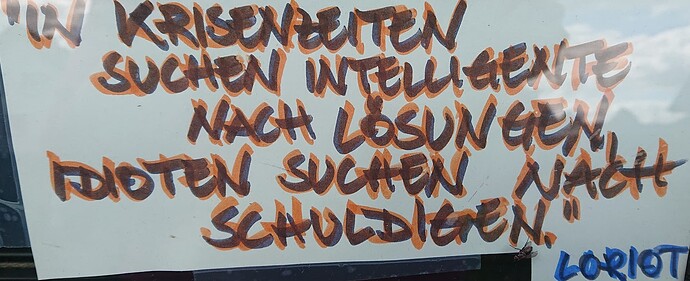 "IN KRISENZEITEN
SUCHEN INTELLIGENTE
NACH LÖSUNGEN,
IDIOTEN SUCHEN NACH
SCHULDIGEN."
LORIOT